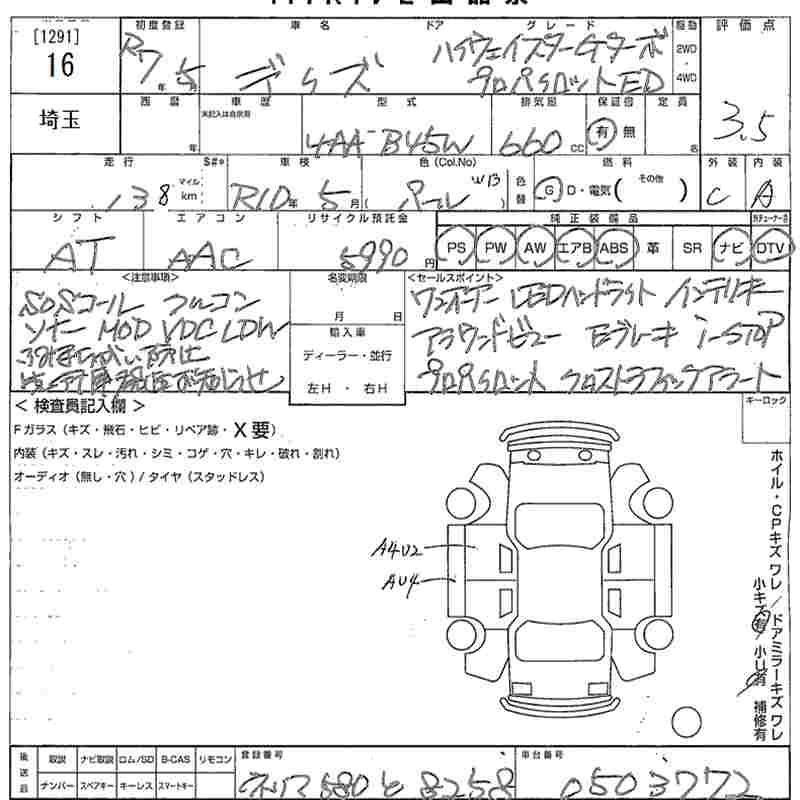 [1291]
16
埼玉
初度登録
R7年5月
車名
デイズ
ドア
グレード
ハイウェイスターGターボ
プロパイロットED
駆動
2WD
4WD
評価点
3.5
西暦
年
車歴
未記入は自家用
型式
4AA-B45W
排気量
660cc
保証書
有 無
定員
名
走行
138
マイル
km
S#*
車検
R10年5月
色(Col.No)
( パール W13 )
色替
燃料
G D・電気( その他 )
外装
C
内装
A
シフト
AT
エアコン
AAC
リサイクル預託金
5990円
純正装備品
PS PW AW エアB ABS 革 SR ナビ DTV
<注意事項>
SOSコール フルコン
ソナー MOD VDC LDW
名変期限
月 日
輸入車
ディーラー・並行
左H・右H
<セールスポイント>
ワンオーナー LEDヘッドライト インテリキー
アラウンドビュー Eブレーキ i-STOP
プロパイロット クロストラフィックアラート
< 検査員記入欄 >
Fガラス(キズ・飛石・ヒビ・リペア跡・X要)
内装(キズ・スレ・汚れ・シミ・コゲ・穴・キレ・破れ・割れ)
オーディオ(無し・穴)/タイヤ(スタッドレス)
キーロック
A4U2
AU4
ホイル・CPキズ ワレ/ドアミラーキズ ワレ
小キズ有 小U有 補修有
後送品
取説 ナビ取説 ロム/SD B-CAS リモコン
ナンバー スペアキー キーレス スマートキー
登録番号
580と8258
車台番号
0503772